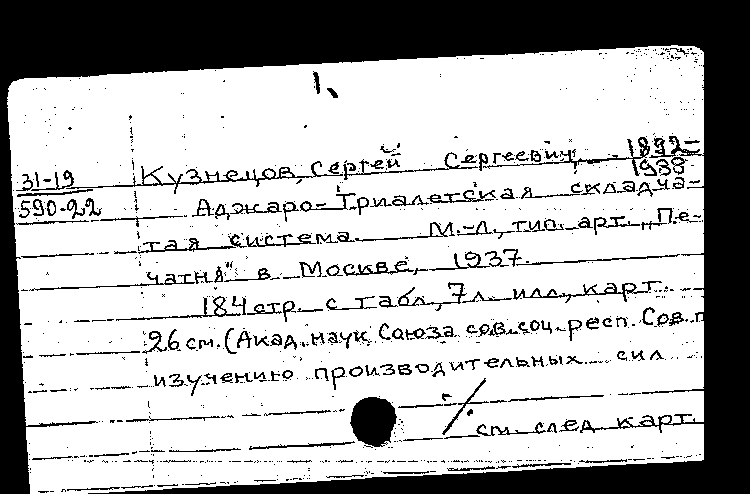 1.
31-19
590-22
Кузнецов, Сергей Сергеевич, 1892-
1988
Аджаро-Триалетская складча-
тая система. М.-Л., тип. арт. „Пе-
чатня" в Москве, 1937.
184 стр. с табл., 7 л. илл., карт.
26 см. (Акад. наук Союза сов. соц. респ. Сов. п
изучению производительных сил
·/·
см. след карт.